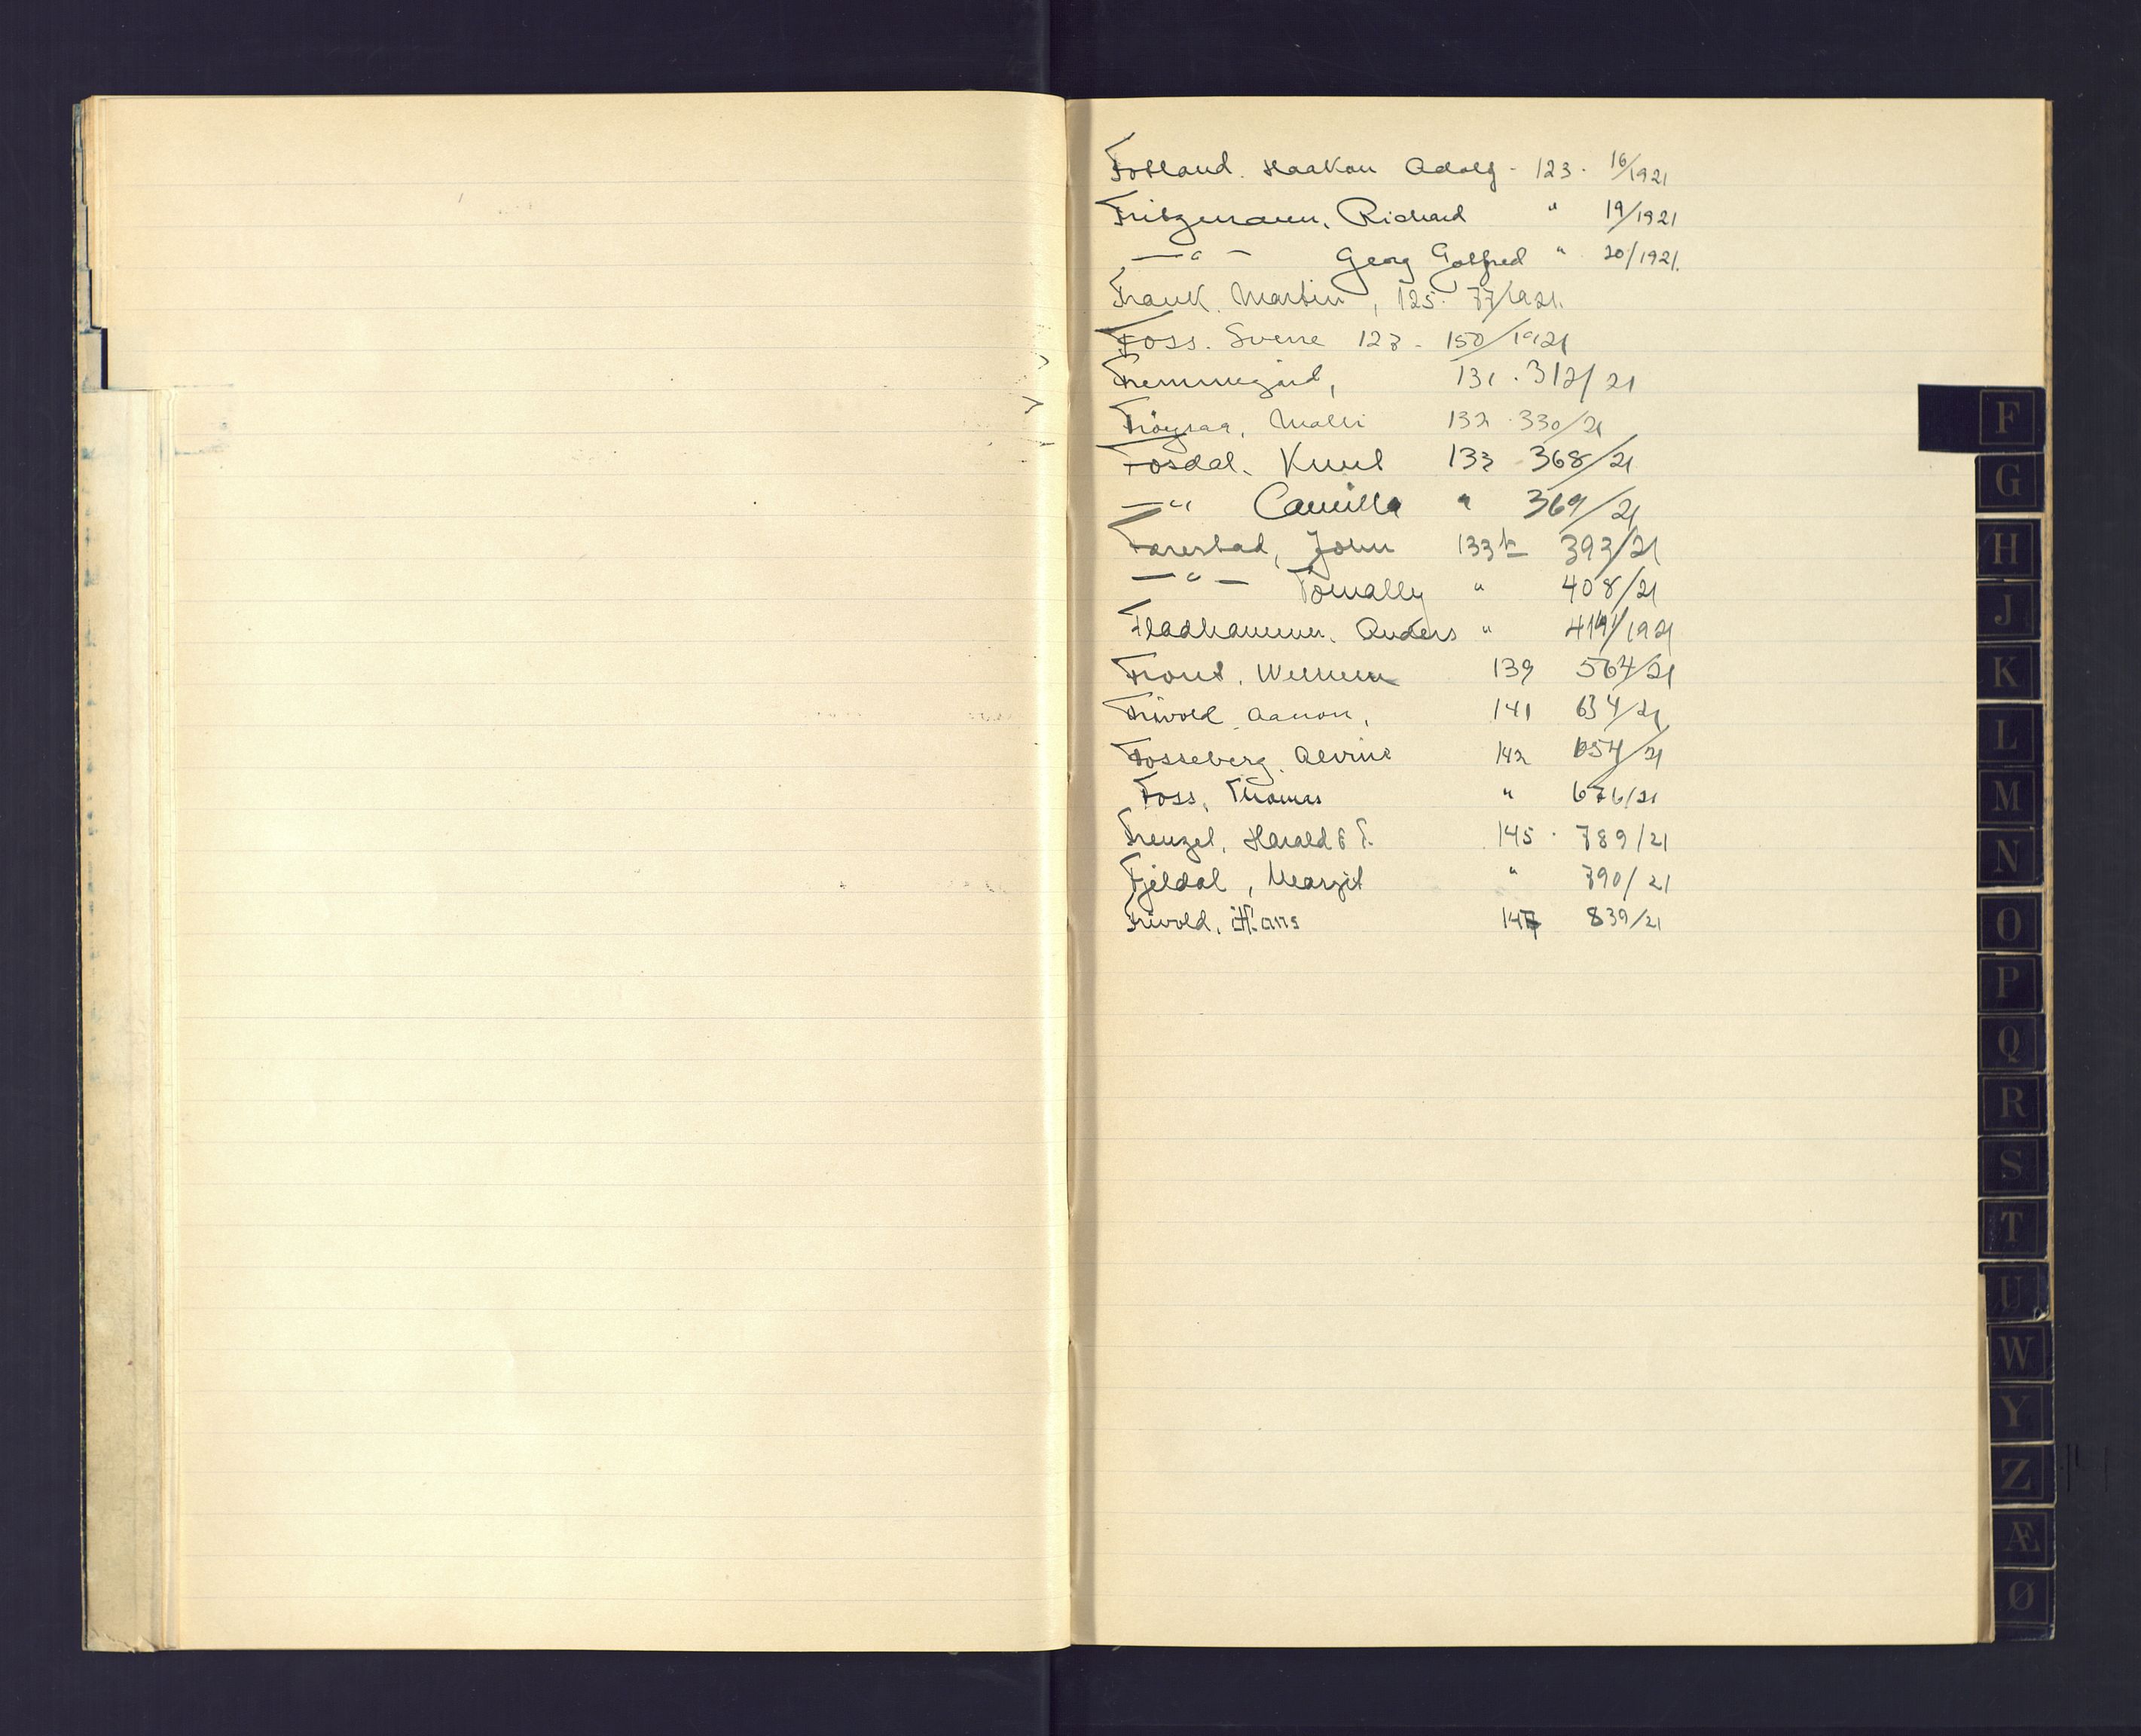 Fotland. Haakon Adolf - 123 - 16/1921
Fritzmann, Richard " 19/1921
—"— Georg Gotfred " 20/1921.
Frank. Martin, 125. 77/1921.
Foss. Sverre 123 - 150/1921
131 . 312/21
Malli 132 . 330/21
Fosdal. Knut 133 368/21
—"— Camilla " 369/21
Farestad, John 133 393/21
—"— " 408/21
Fladhammer. Anders " /1921
139 564/21
Frivold Aanon, 141 634/21
Fosseberg. Alvine 142 654/21
Foss, Thomas " 676/21
Frenzel, Harald 145 . 789/21
Fjeldal, Margit " 790/21
Frivold, Hans 147 839/21
F
G
H
J
K
L
M
N
O
P
Q
R
S
T
U
W
Y
Z
Æ
Ø